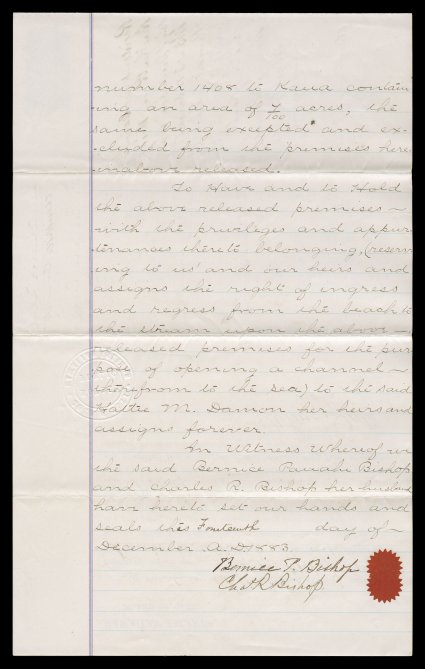 number 1408 to Kaua contain
ing an area of 7/100 acres, the
same being excepted and ex-
-cluded from the premises here
inabove released.
To Have and to Hold
the above released premises ~
with the privileges and appur
tenances thereto belonging, (reserv
ing to us and our heirs and
assigns the right of ingress
and regress from the beach to
the stream upon the above -
released premises for the pur
pose of opening a channel ~
therefrom to the sea) to the said
Hattie M. Damon her heirs and
assigns forever.
In Witness Whereof we
the said Bernice Pauahi Bishop
and Charles R. Bishop her husband
have hereto set our hands and
seals this Fourteenth day of ~
December A. D. 1883.
Bernice P. Bishop
Chas R Bishop